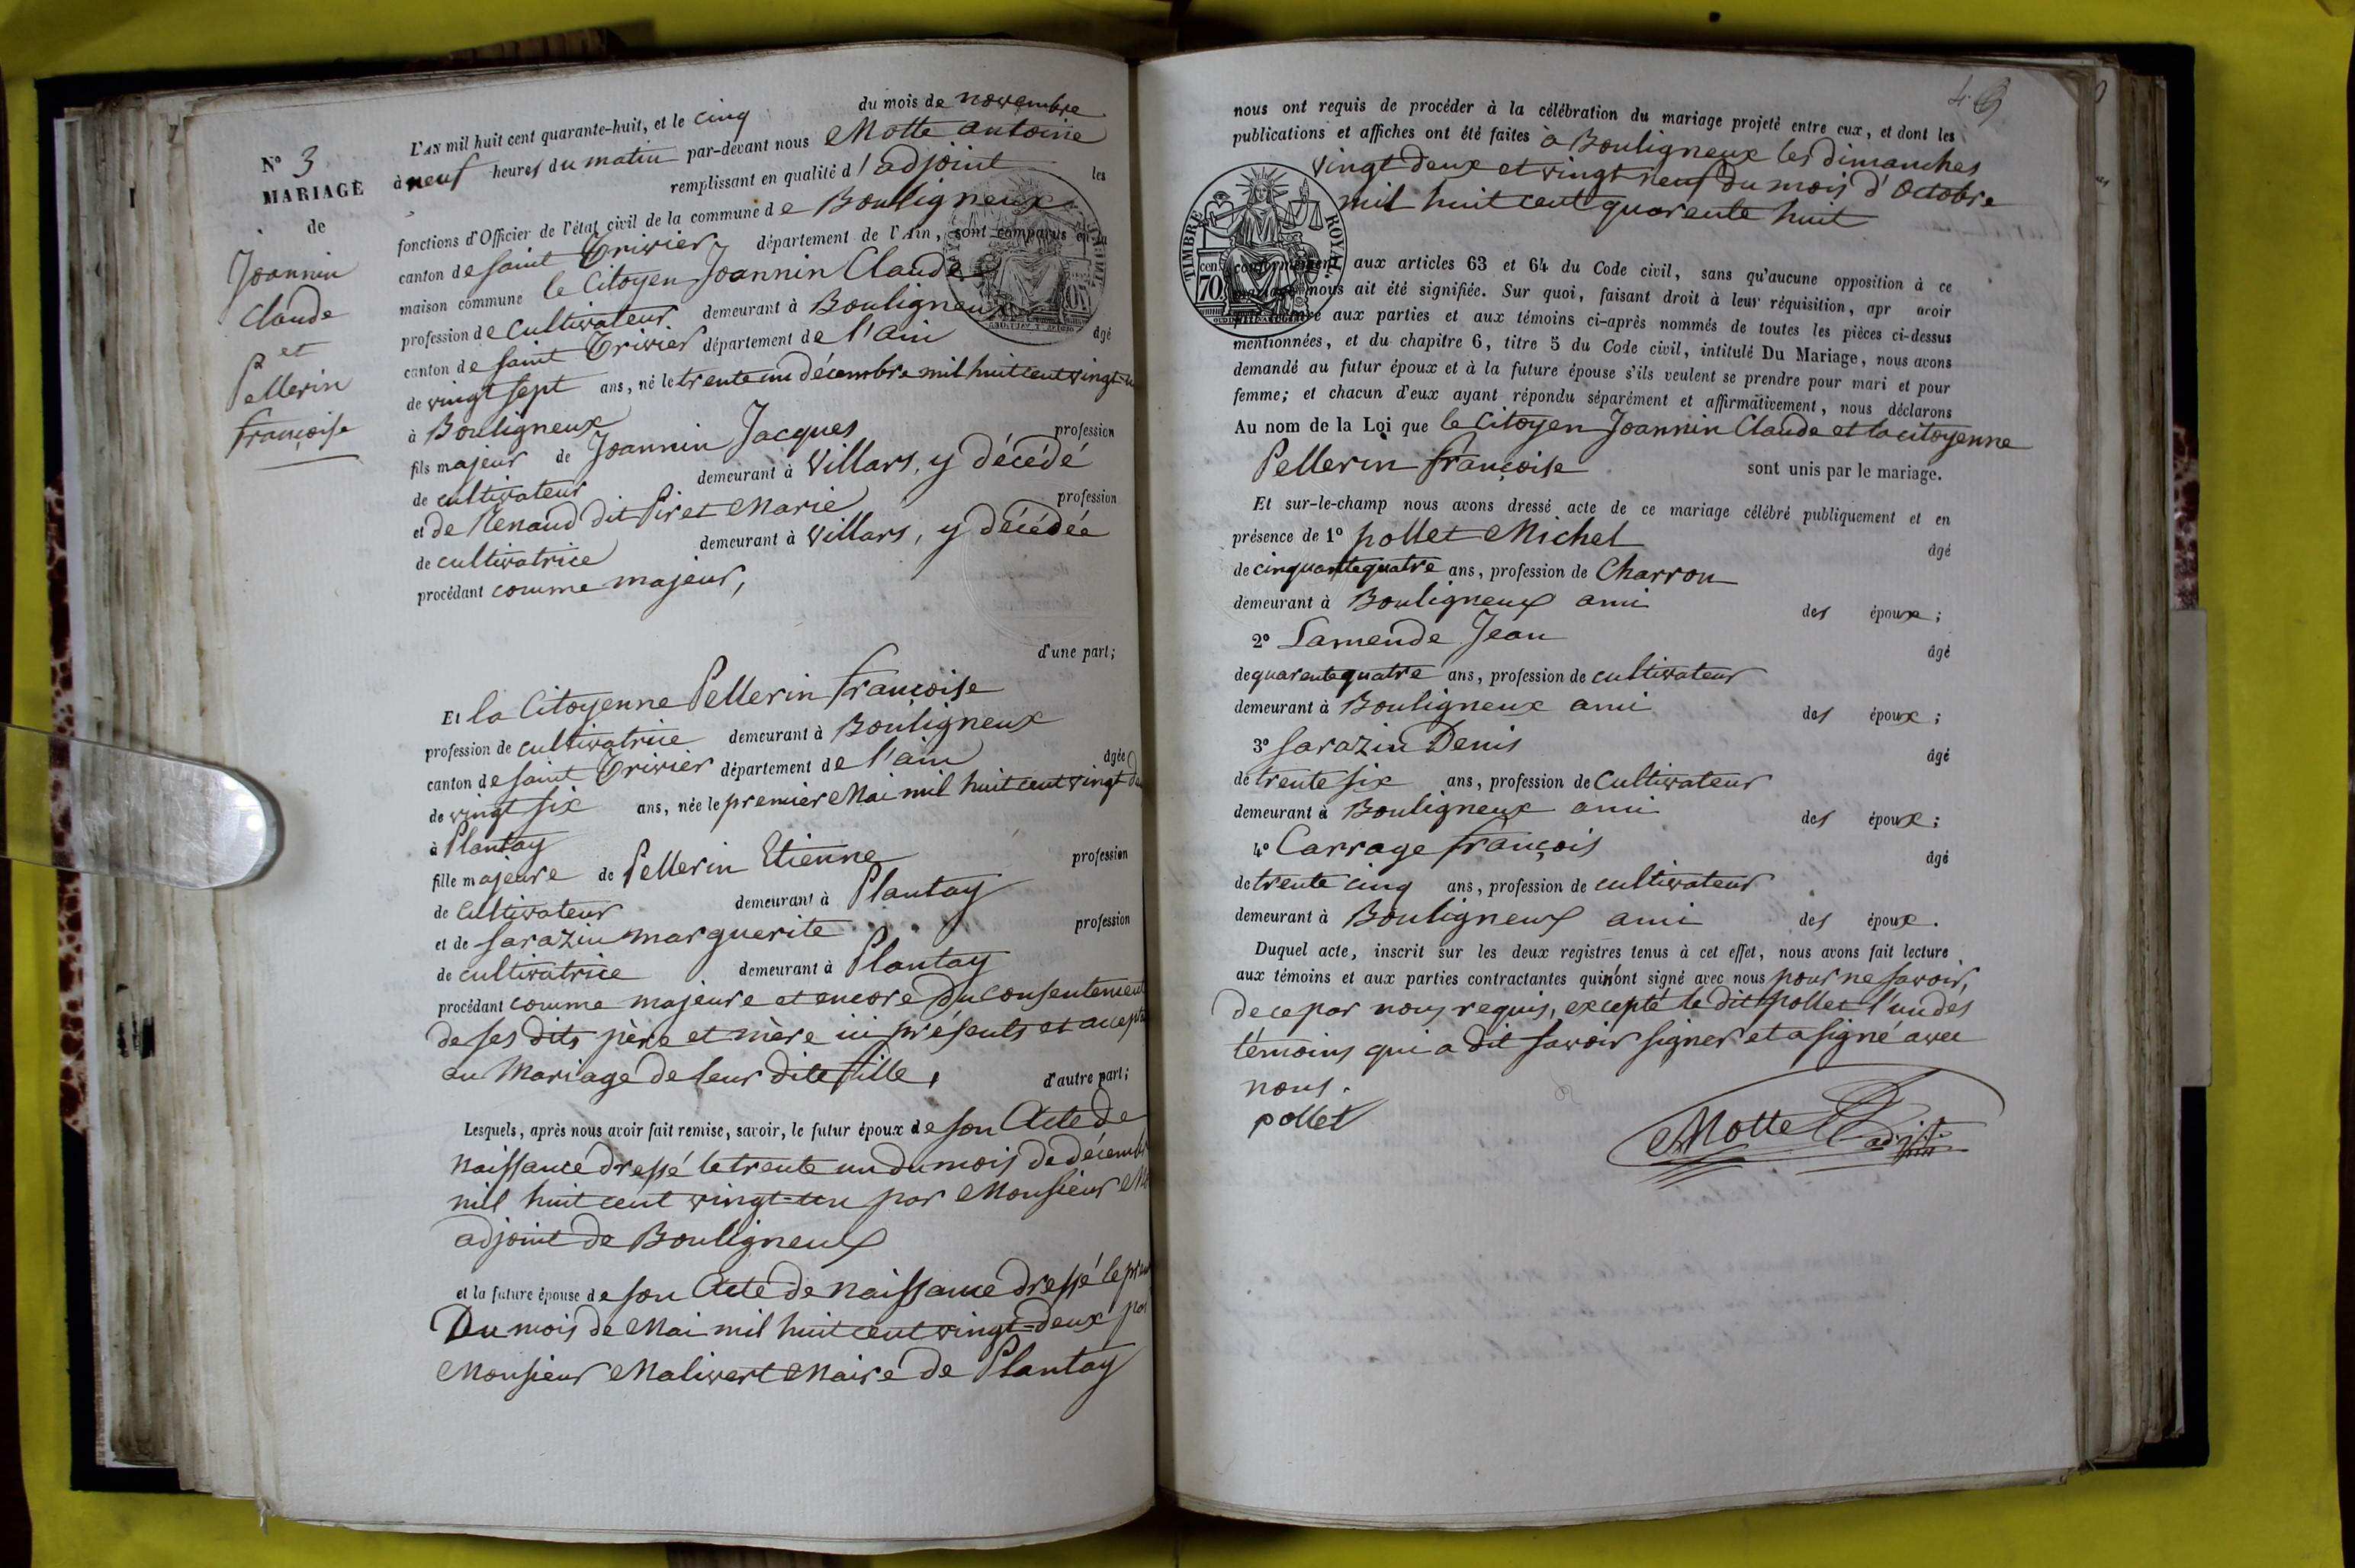 N° 3
MARIAGE
de
Joannin
Claude
et
Pellerin
françoise
L'AN mil huit cent quarante-huit, et le cinq du mois de novembre
à neuf heures du matin par-devant nous Motte antoine
remplissant en qualité d'adjoint les
fonctions d'Officier de l'état civil de la commune de Bouligneux
canton de saint Trivier département de l'Ain, sont comparus en la
maison commune le Citoyen Joannin Claude
profession de Cultivateur demeurant à Bouligneux
canton de saint Trivier département de l'ain âgé
de vingt sept ans, né le trente un décembre mil huit cent vingt-u
à Bouligneux
fils majeur de Joannin Jacques profession
de cultivateur demeurant à Villars, y décédé
et de Renaud dit Piret Marie profession
de cultivatrice demeurant à Villars, y décédée
procédant comme majeur,
d'une part;
Et la Citoyenne Pellerin françoise
profession de cultivatrice demeurant à Bouligneux
canton de saint Trivier département de l'ain âgée
de vingt six ans, née le premier Mai mil huit cent vingt
à Plantay
fille majeure de Pellerin Etienne profession
de Cultivateur demeurant à Plantay
et de Sarazin marguerite profession
de cultivatrice demeurant à Plantay
procédant comme majeure et encore du consentement
de ses dits père et mère ici présents et
au Mariage de leur dite fille, d'autre part;
Lesquels, après nous avoir fait remise, savoir, le futur époux de son Acte de
Naissance dressé le trente un du mois de décemb
mil huit cent vingt-un par Monsieur
adjoint de Bouligneux
et la future épouse de son Acte de Naissance dressé le
Du mois de Mai mil huit cent vingt-deux par
Monsieur Malivert Maire de Plantay
49
nous ont requis de procéder à la célébration du mariage projeté entre eux, et dont les
publications et affiches ont été faites à Bouligneux les dimanches
vingt deux et vingt neuf du mois d'Octobre
mil huit cent quarente huit
TIMBRE ROYAL
cen
70
conformément aux articles 63 et 64 du Code civil, sans qu'aucune opposition à ce
mariage nous ait été signifiée. Sur quoi, faisant droit à leur réquisition, apr avoir
aux parties et aux témoins ci-après nommés de toutes les pièces ci-dessus
mentionnées, et du chapitre 6, titre 5 du Code civil, intitulé Du Mariage, nous avons
demandé au futur époux et à la future épouse s'ils veulent se prendre pour mari et pour
femme; et chacun d'eux ayant répondu séparément et affirmativement, nous déclarons
Au nom de la Loi que le Citoyen Joannin Claude et la citoyenne
Pellerin françoise sont unis par le mariage.
Et sur-le-champ nous avons dressé acte de ce mariage célébré publiquement et en
présence de 1° pollet Michel âgé
de cinquante quatre ans, profession de Charron
demeurant à Bouligneux ami des époux;
2° Lamende Jean âgé
de quarente quatre ans, profession de cultivateur
demeurant à Bouligneux ami des époux;
3° Sarazin Denis âgé
de trente six ans, profession de Cultivateur
demeurant à Bouligneux ami des époux;
4° Carrage françois âgé
de trente cinq ans, profession de cultivateur
demeurant à Bouligneux ami des époux.
Duquel acte, inscrit sur les deux registres tenus à cet effet, nous avons fait lecture
aux témoins et aux parties contractantes qui n'ont signé avec nous pour ne savoir,
de ce par nous requis, excepté le dit pollet l'un des
témoins qui a dit savoir signer et a signé avec
nous.
pollet
Motte adjt